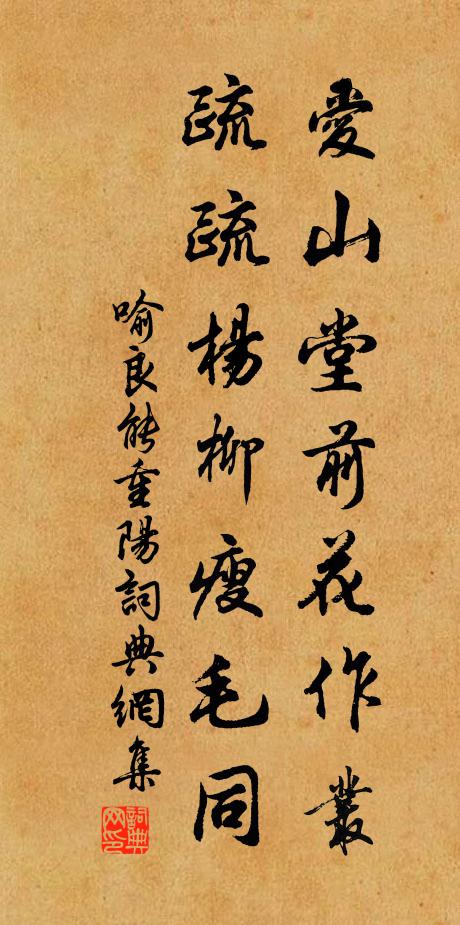 愛山堂前花作叢
疏疏楊柳瘦毛同
喻良能重陽詞典網集
詞典網印